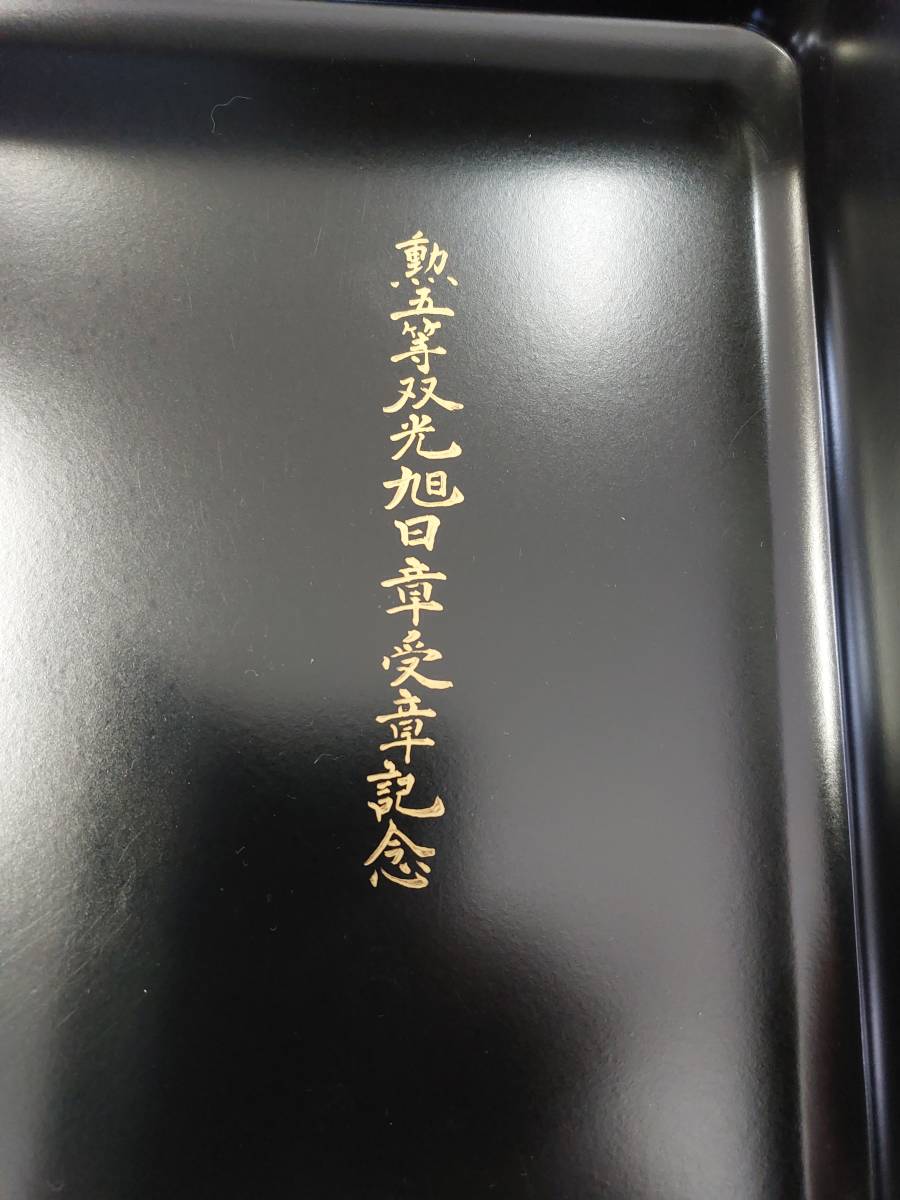 勲五等双光旭日章受章記念